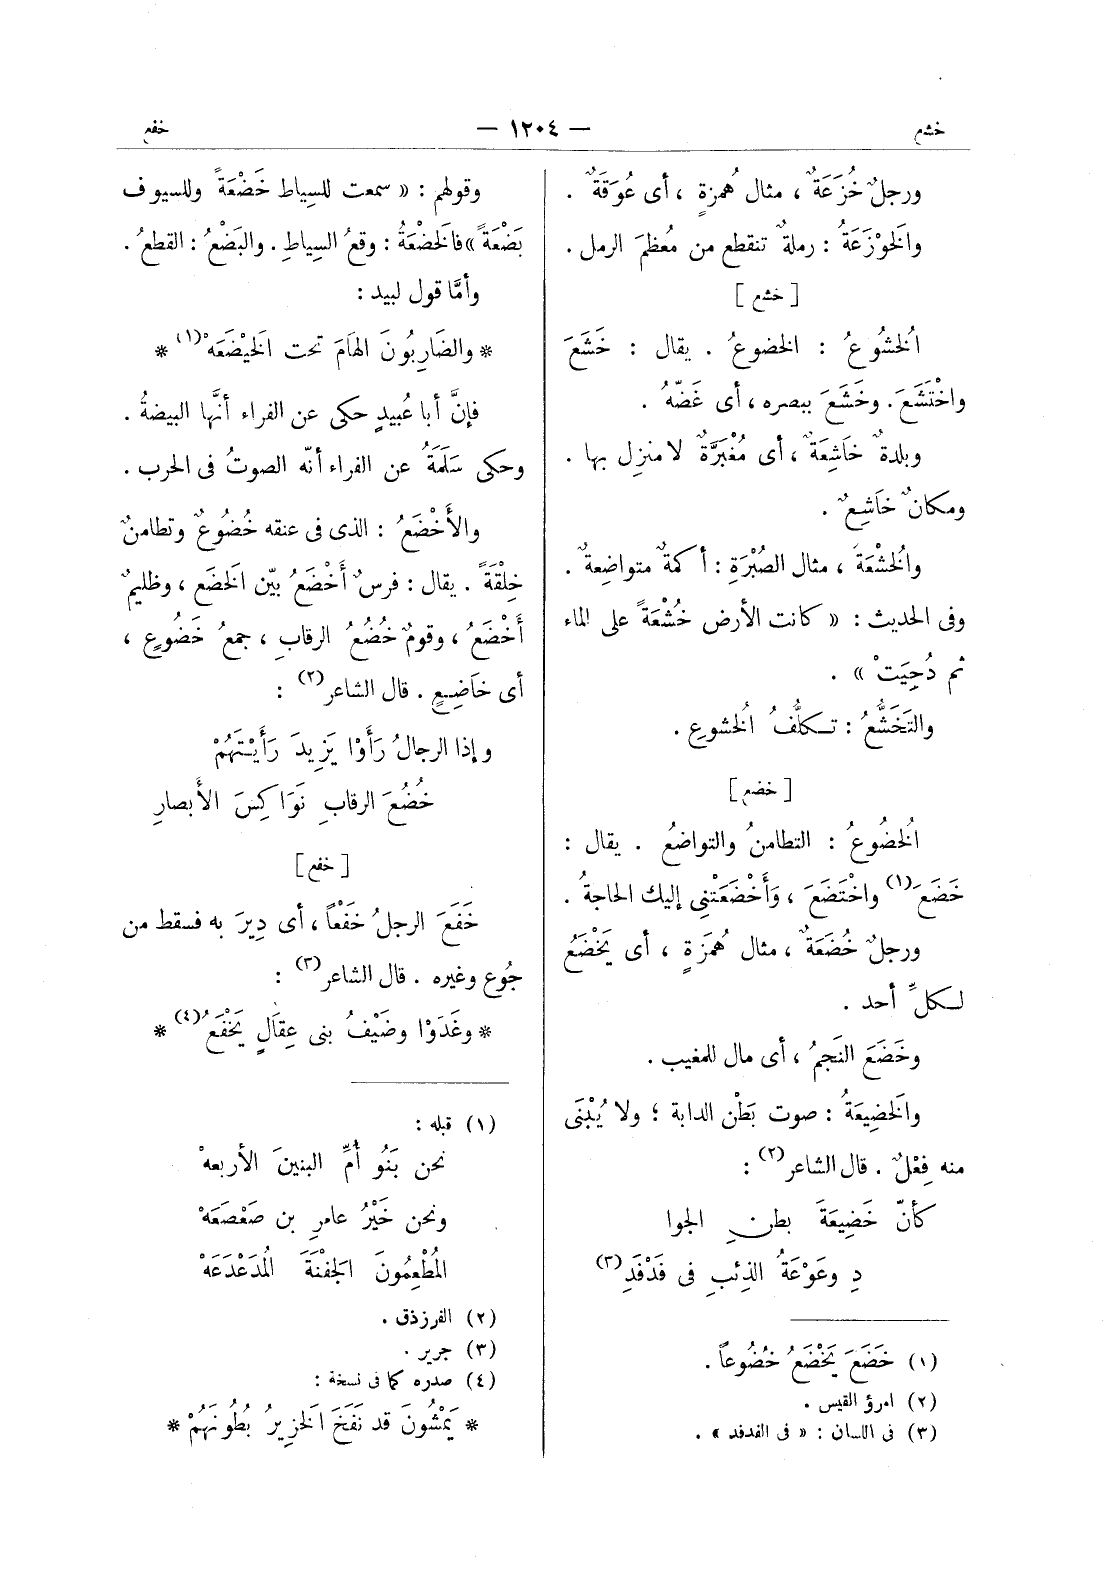 خشع — ١٢٠٤ — خفع
ورجلٌ خُزَعَةٌ ، مثال هُمزةٍ ، أى عُوَقَةٌ .
والَخوْزَعَةُ : رملةٌ تنقطع من مُعظَم الرمل .
[ خشع ]
اُلخشُوعُ : الخضوعُ . يقال : خَشَعَ
واخْتَشَعَ . وخَشَعَ ببصره ، أى غَضّهُ .
وبلدةٌ خَاشِعَةٌ ، أى مُغْبَرَّةٌ لا منزِل بها .
ومكانٌ خَاشِعٌ .
والُخشْعَةَ ، مثال الصُبْرَةِ : أكمةٌ متواضِعةٌ .
وفى الحديث : « كانت الأرض خُشْعَةً على الماء
ثم دُحِيَتْ » .
والتَخَشُّعُ : تكلُّفُ اُلخشوعِ .
[ خضع ]
اُلخضُوعُ : التطامنُ والتواضعُ . يقال :
خَضَعَ (١) واخْتَضَعَ ، وَأَخْضَعَتْنِى إليك الحاجةُ .
ورجلٌ خُضَعَةٌ ، مثال هُمَزَةٍ ، أى يَخْضَعُ
لكلِّ أحد .
وخَضَعَ النَجمُ ، أى مال للمغيب .
والَخضِيعَةُ : صوت بَطْن الدابة ؛ ولا يُبْنَى
منه فِعْلٌ . قال الشاعر (٢) :
كأنّ خَضِيعَةَ بطنِ الجوا
دِ وعَوْعَةُ الذِئبِ فى فَدْفَدِ (٣)
(١) خَضَعَ يَخْضَعُ خُضُوعاً .
(٢) امرؤ القيس .
(٣) فى اللسان : « فى الفدفد » .
وقولهم : « سمعت للسِياط خَضْعَةً وللسيوف
بَضْعَةً » فالَخضْعَةُ : وقعُ السِياطِ . والبَضْعُ : القطعُ .
وأمَّا قول لبيد :
* والضَارِبُونَ الهَامَ تحت الَخيْضَعَهْ (١) *
فإنَّ أبا عُبيدٍ حكى عن الفراء أنَّها البيضةُ .
وحكى سَلَمَةُ عن الفراء أنّه الصوتُ فى الحرب .
والأَخْضَعُ : الذى فى عنقه خُضُوعٌ وتطامنٌ
خِلْقَةً . يقال : فرسٌ أَخْضَعُ بيّن الَخضَعِ ، وظليمٌ
أَخْضَعُ ، وقومٌ خُضُعُ الرقابِ ، جمعُ خَضُوعٍ ،
أى خاَضِعٍ . قال الشاعر (٢) :
وإذا الرجالُ رَأَوْا يَزِيدَ رَأَيْتَهُمْ
خُضُعَ الرقابِ نَوَاكِسَ الأَبصارِ
[ خفع ]
خَفَعَ الرجلُ خَفْعاً ، أى دِيرَ به فسقط من
جُوع وغيره . قال الشاعر (٣) :
* وغَدَوْا وضَيْفُ بنى عِقَالٍ يَخْفَعُ (٤) *
(١) قبله :
نحن بَنُو أُمِّ البنينَ الأربعهْ
ونحن خَيْرُ عامرِ بن صَعْصَعَهْ
الُمطْعِمُونَ الَجفْنَةَ الُمدَعْدَعَهْ
(٢) الفرزدق .
(٣) جرير .
(٤) صدره كما فى نسخة :
* يَمْشُونَ قد نَفَخَ الَخزِيرُ بُطُونَهُمْ *